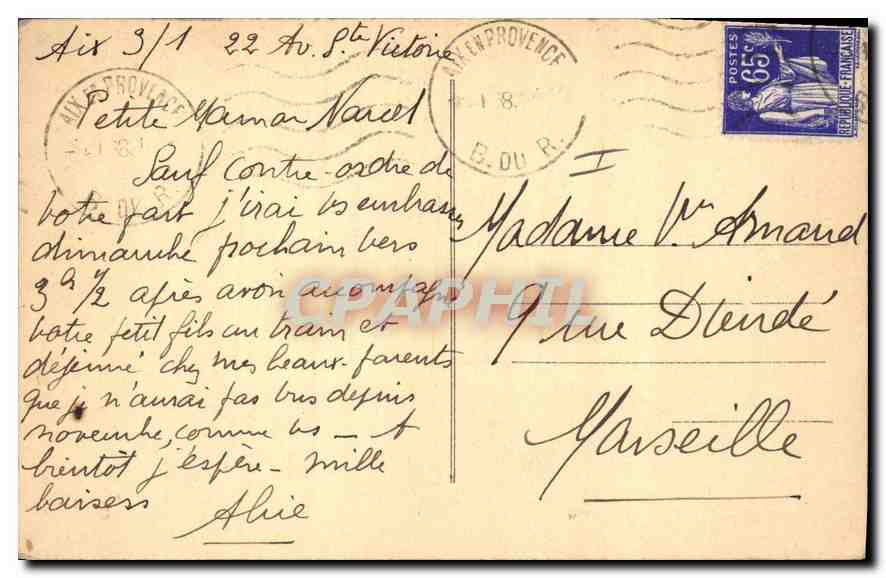 Aix 3/1 22 Av. Ste Victoire
Petite Maman Marcel
Sauf contre-ordre de
votre part j'irai vs embrasser
dimanche prochain vers
3h 1/2 après avoir accompagné
votre petit fils au train et
déjeuné chez mes beaux-parents
que je n'aurai pas vus depuis
novembre, comme vs - A
bientôt j'espère - mille
baisers
Alice
AIX EN PROVENCE
B. DU R.
AIX EN PROVENCE
B. DU R.
POSTES
65c
REPUBLIQUE-FRANÇAISE
I
Madame Vve Armand
9 rue Dieudé
Marseille
CPAPHIL